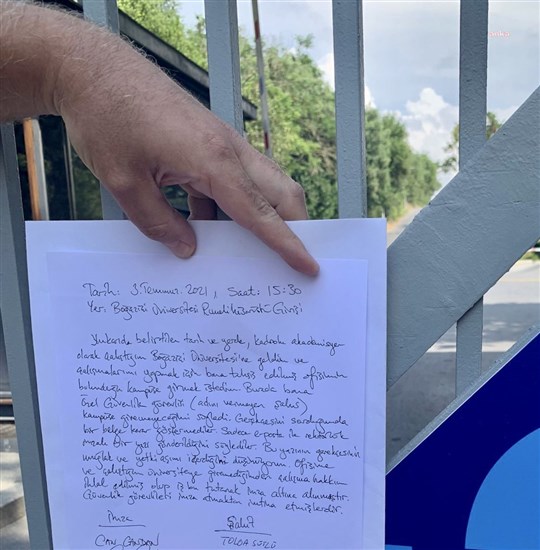 Tarih: 3 Temmuz 2021, Saat: 15:30
Yer: Boğaziçi Üniversitesi Rumelihisarüstü Girişi
Yukarıda belirtilen tarih ve yerde, kadrolu akademisyen
olarak çalıştığım Boğaziçi Üniversitesi'ne geldim ve
çalışmalarımı yapmak için bana tahsis edilmiş ofisimin
bulunduğu kampüse girmek istedim. Burada bana
Özel Güvenlik görevlisi (adını vermeyen şahıs)
kampüse giremeyeceğimi söyledi. Gerekçesini sorduğumda
bir belge/karar göstermediler. Sadece e-posta ile rektörlük
bir yazı gönderildiğini söylediler. Bu yazının gerekçesinin
ve yetki aşımı içerdiğini düşünüyorum. Ofisime
ve çalıştığım üniversiteye giremediğimden çalışma hakkım
ihlal edilmiş olup iş bu tutanak imza altına alınmıştır.
Güvenlik görevlileri imza atmaktan imtina etmişlerdir.
İmza Şahit
CAN CANDAN TOLGA SÜTLÜ